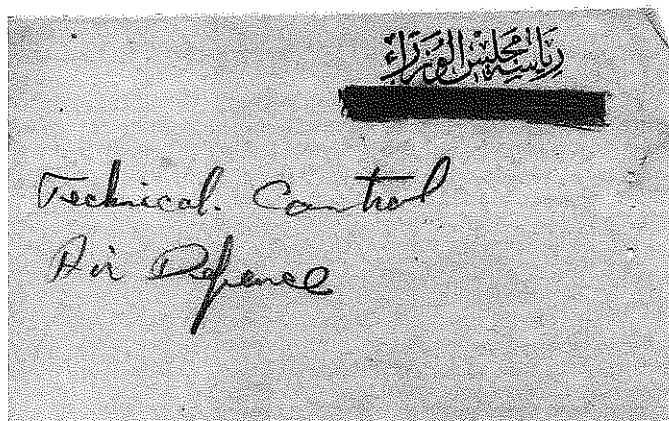 رئاسة مجلس الوزراء
Technical. Control
Air Defence